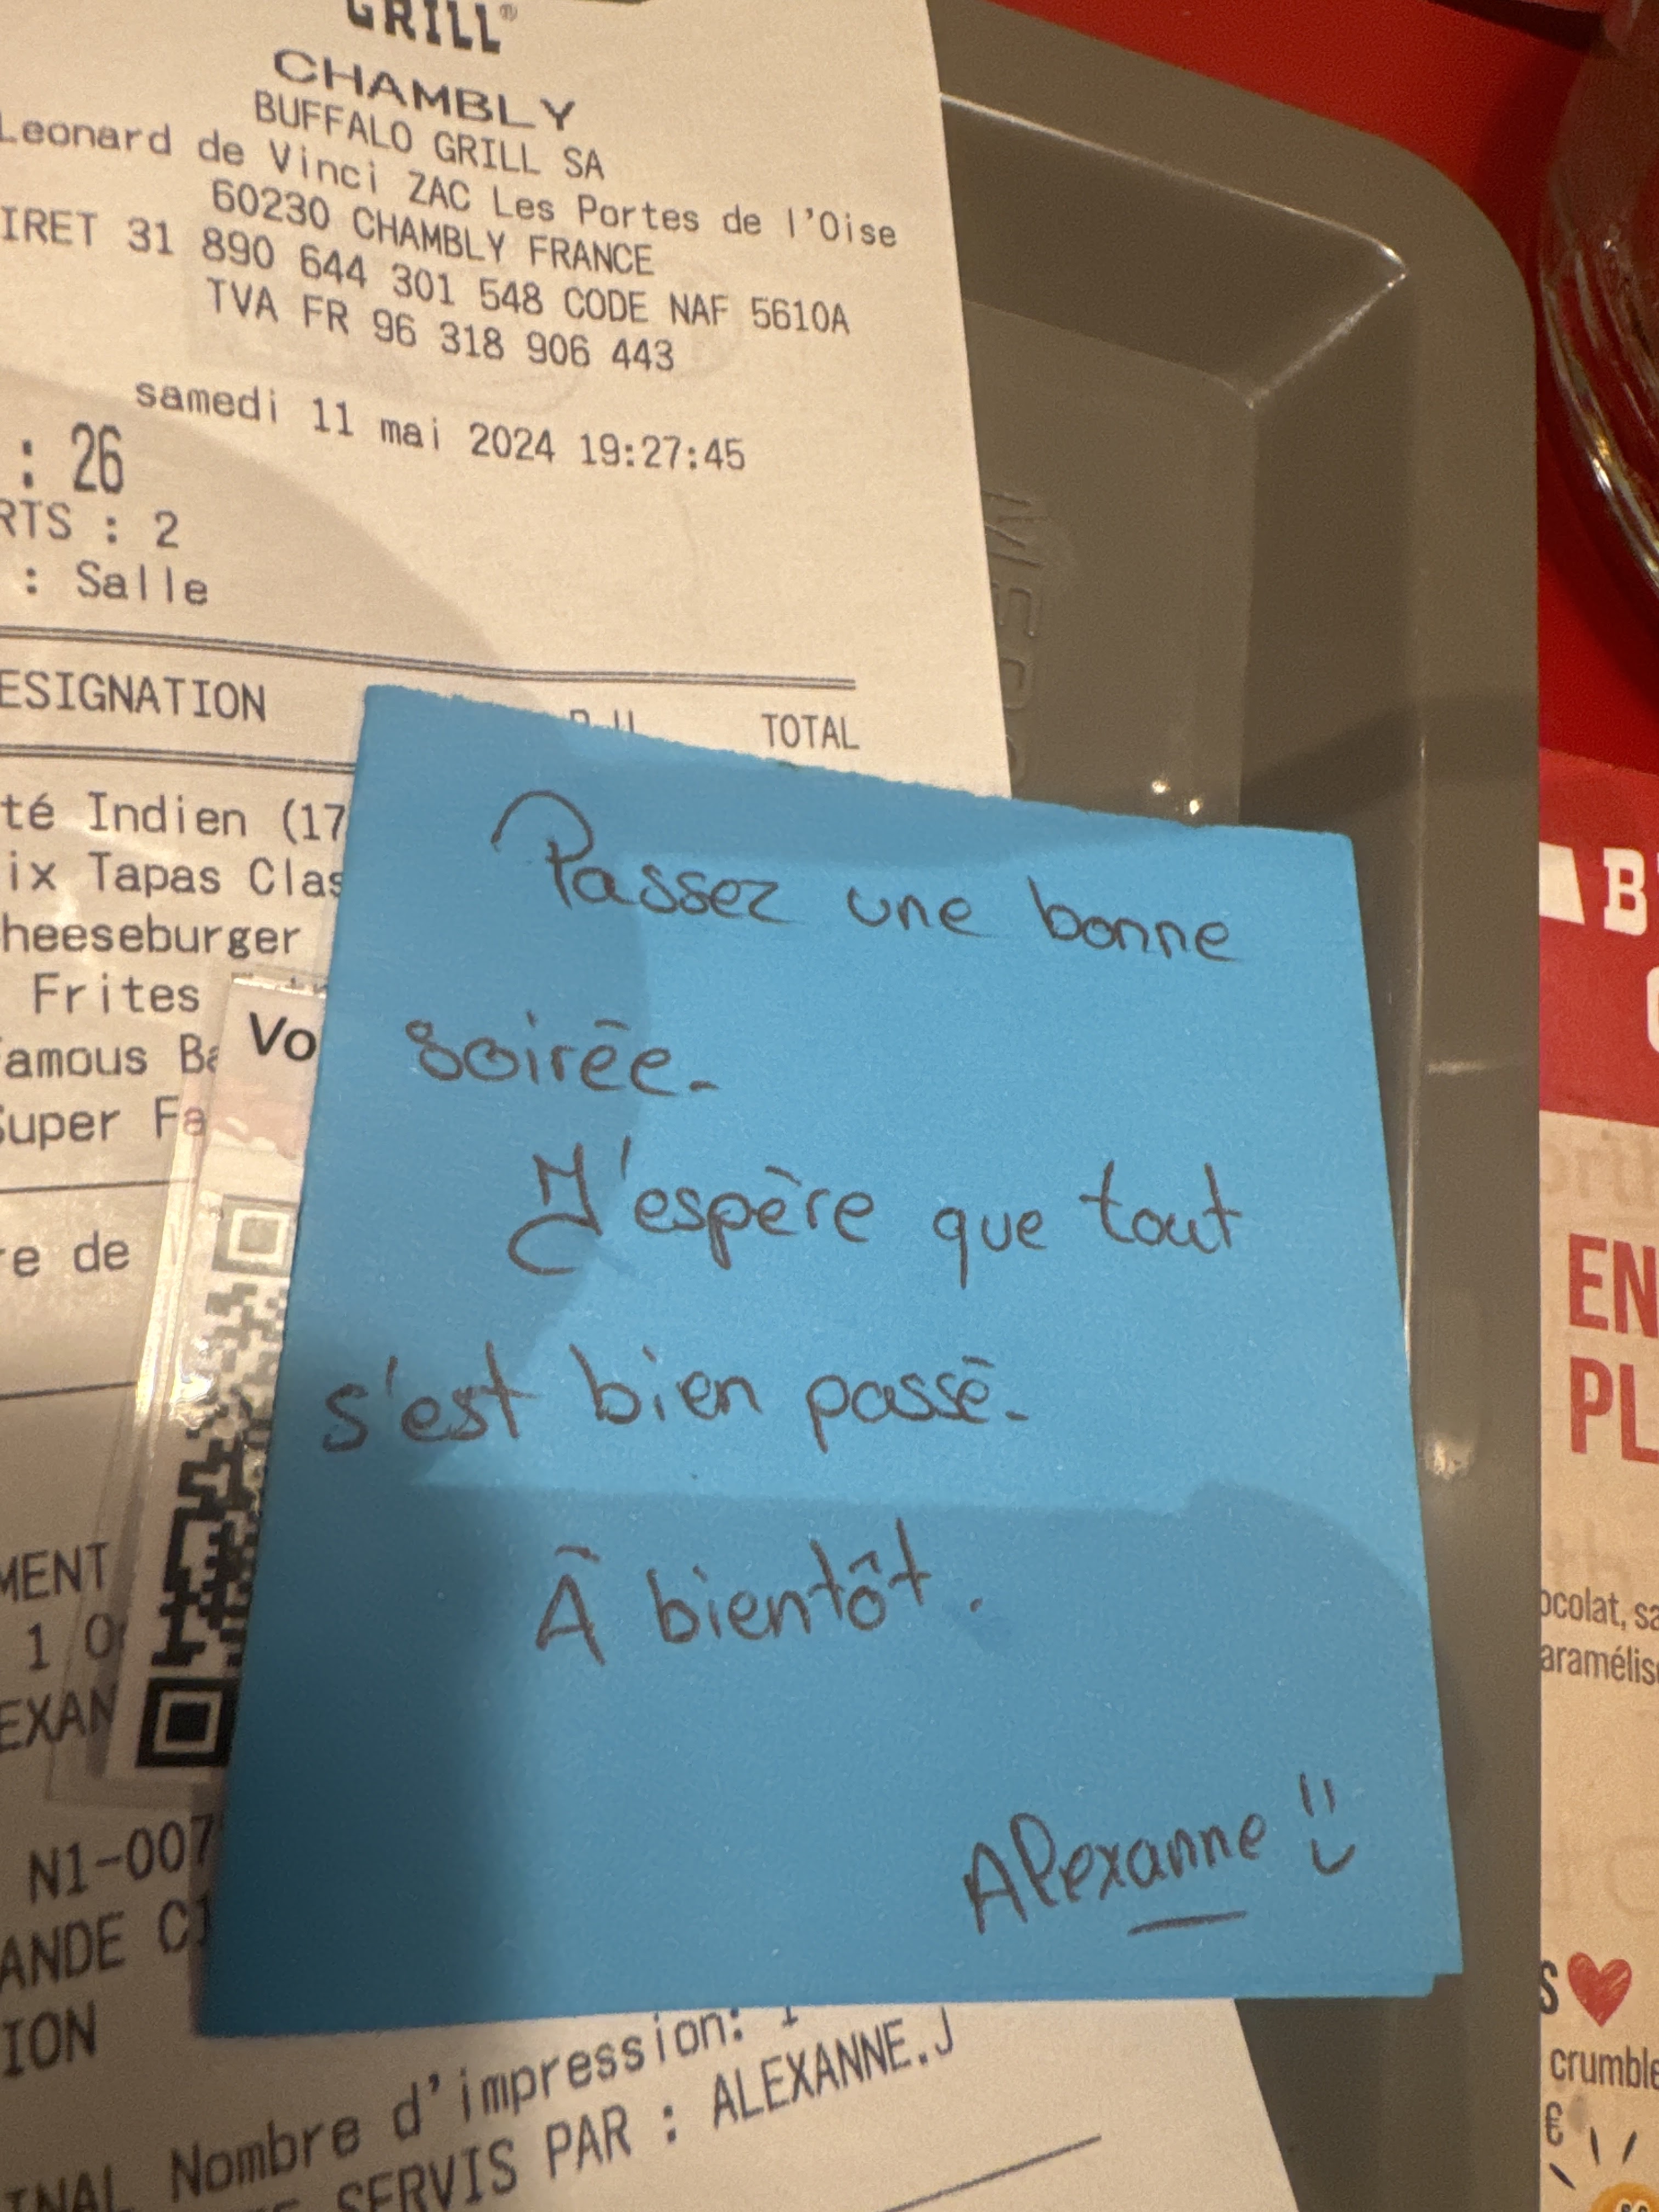 GRILL®
CHAMBLY
BUFFALO GRILL SA
Leonard de Vinci ZAC Les Portes de l'Oise
60230 CHAMBLY FRANCE
IRET 31 890 644 301 548 CODE NAF 5610A
TVA FR 96 318 906 443
samedi 11 mai 2024 19:27:45
: 26
RTS : 2
: Salle
ESIGNATION TOTAL
té Indien (17
ix Tapas Clas
heeseburger
Frites
amous Ba
Super Fa
re de
MENT
1 0
EXAN
N1-007
ANDE
ION
INAL Nombre d'impression: 1
SERVIS PAR : ALEXANNE.J
Vo
Passez une bonne
soirée.
J'espère que tout
s'est bien passé.
À bientôt.
Alexanne
EN
PL
ocolat, sa
aramélis
S
crumble
€